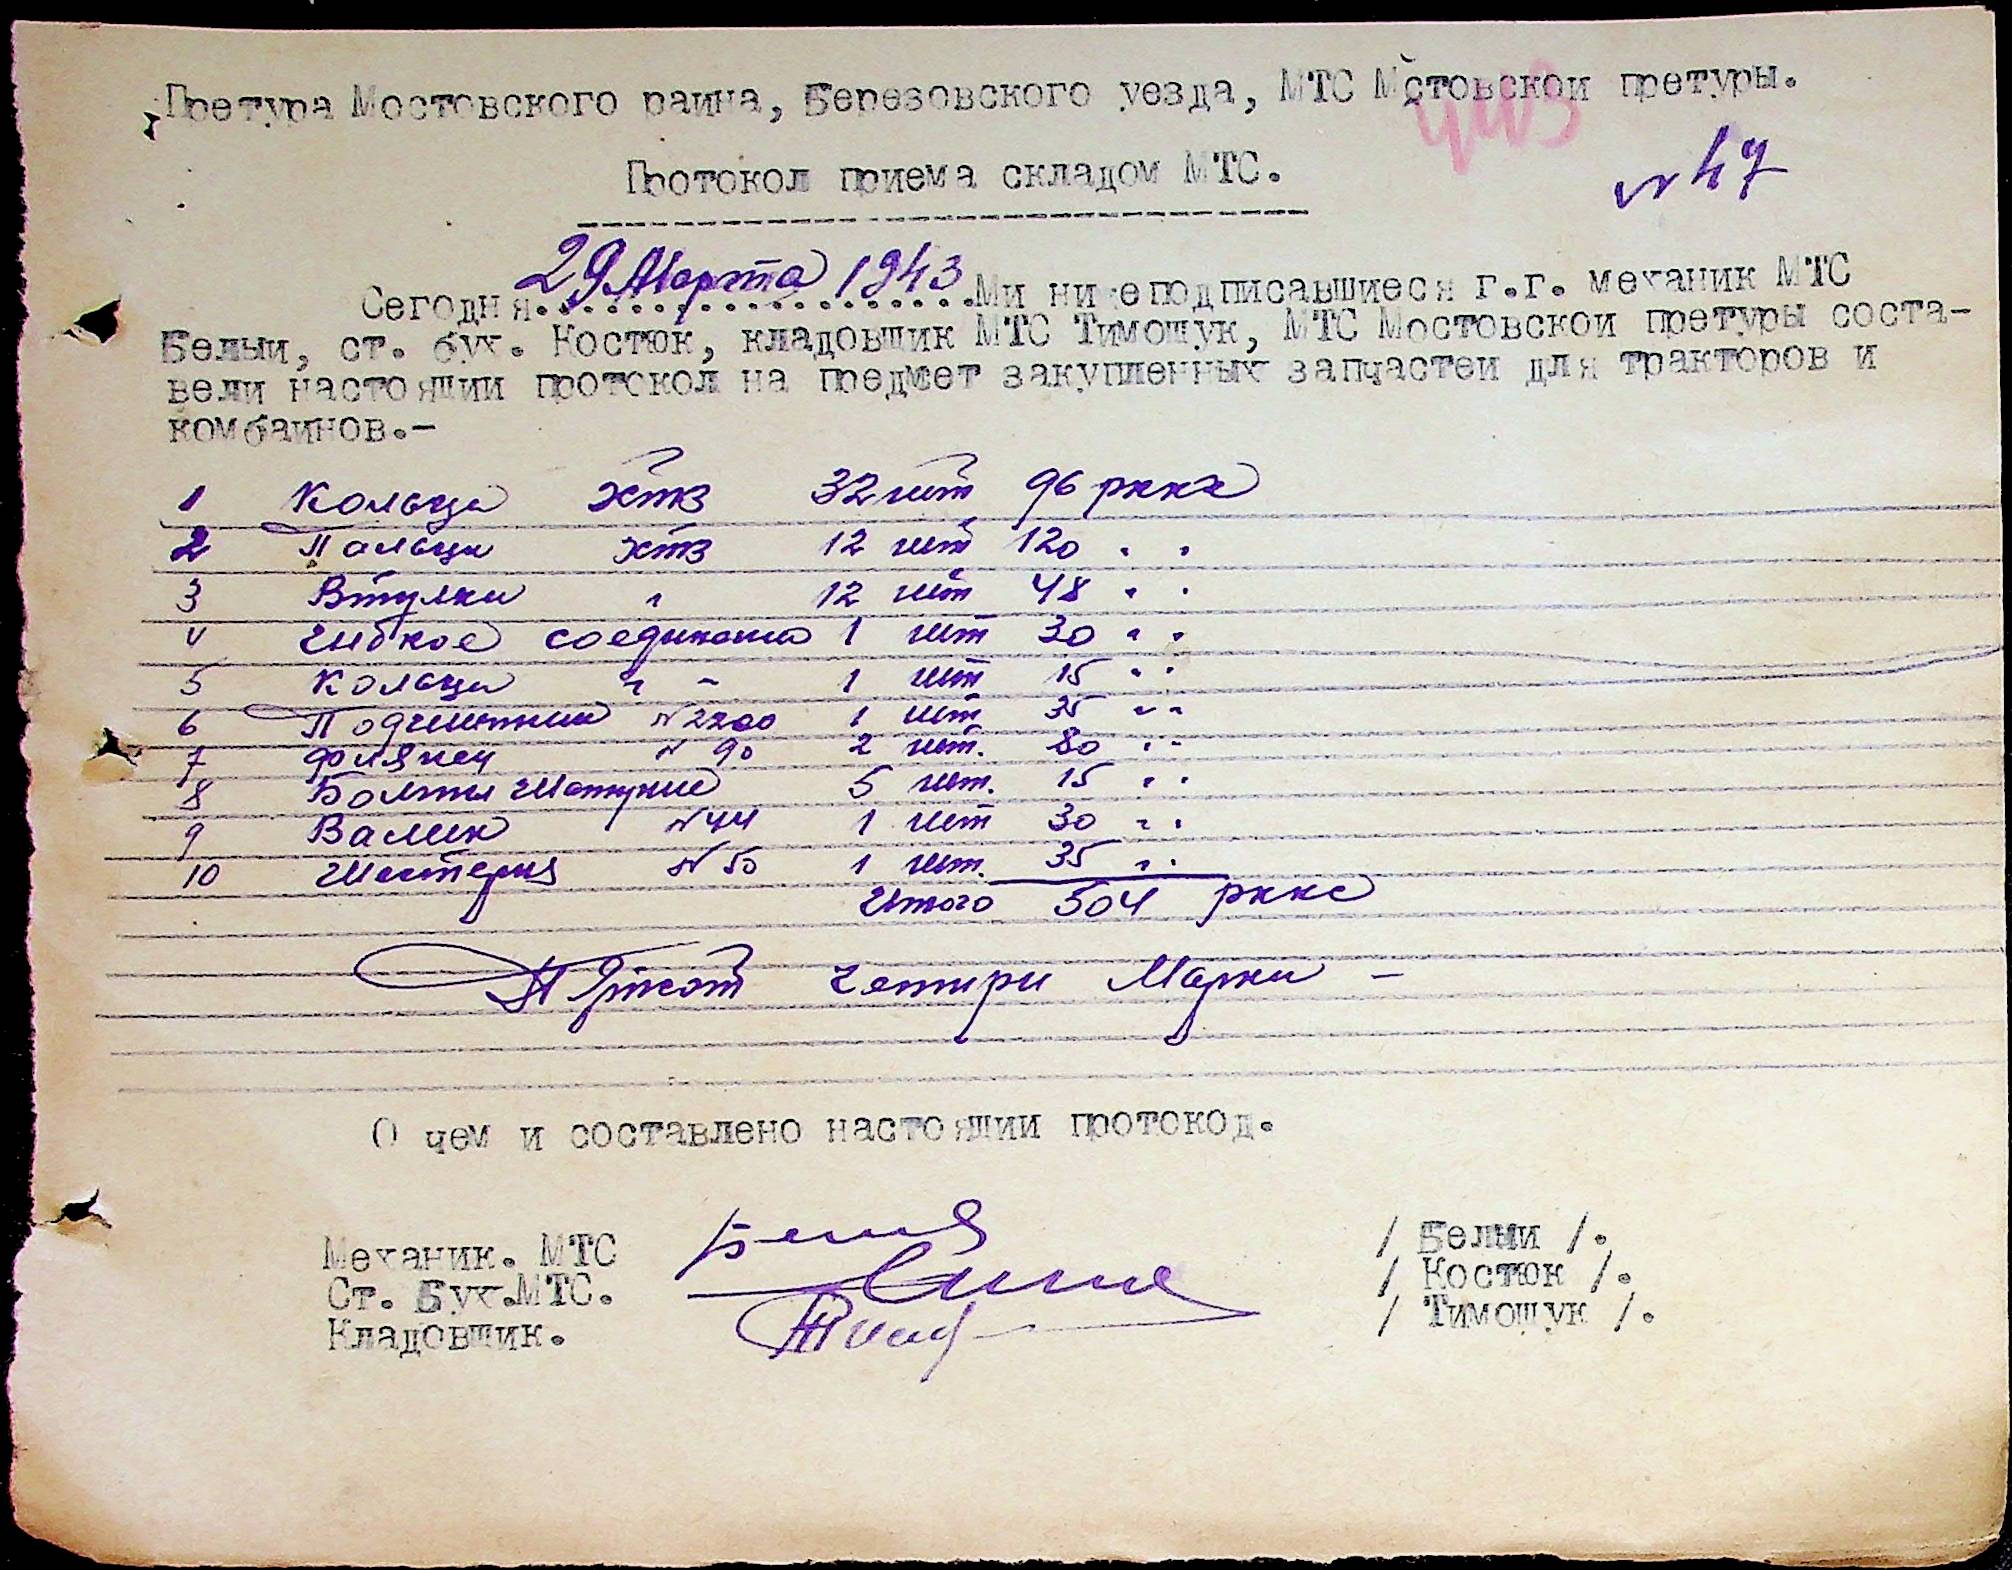 Претура Мостовского раина, Березовского уезда, МТС Мостовскои претуры.
Протокол приема складом МТС.
№ 47
Сегодня 29 Марта 1943 Ми нижеподписавшиеся г.г. механик МТС
Белыи, ст. бух. Костюк, кладовщик МТС Тимощук, МТС Мостовскои претуры соста-
вели настоящии протокол на предмет закупленных запчастеи для тракторов и
комбаинов.-
1 Кольца ХТЗ 32 шт 96 рккс
2 Пальци ХТЗ 12 шт 120 " "
3 Втулки " 12 шт 48 " "
4 гибкое 1 шт 30 " "
5 Кольца " " 1 шт 15 " "
6 Подшипник №2200 1 шт 35 " "
7 Флянец № 90 2 шт. 80 " "
8 Болты Шатуние 5 шт. 15 " "
9 Валик №44 1 шт 30 " "
10 Шестерня № 50 1 шт. 35 " "
Итого 504 рккс
Пятсот четири Марки -
О чем и составлено настоящии протокол.
Механик. МТС / Белыи /.
Ст. Бух.МТС. / Костюк /.
Кладовщик. / Тимощук /.